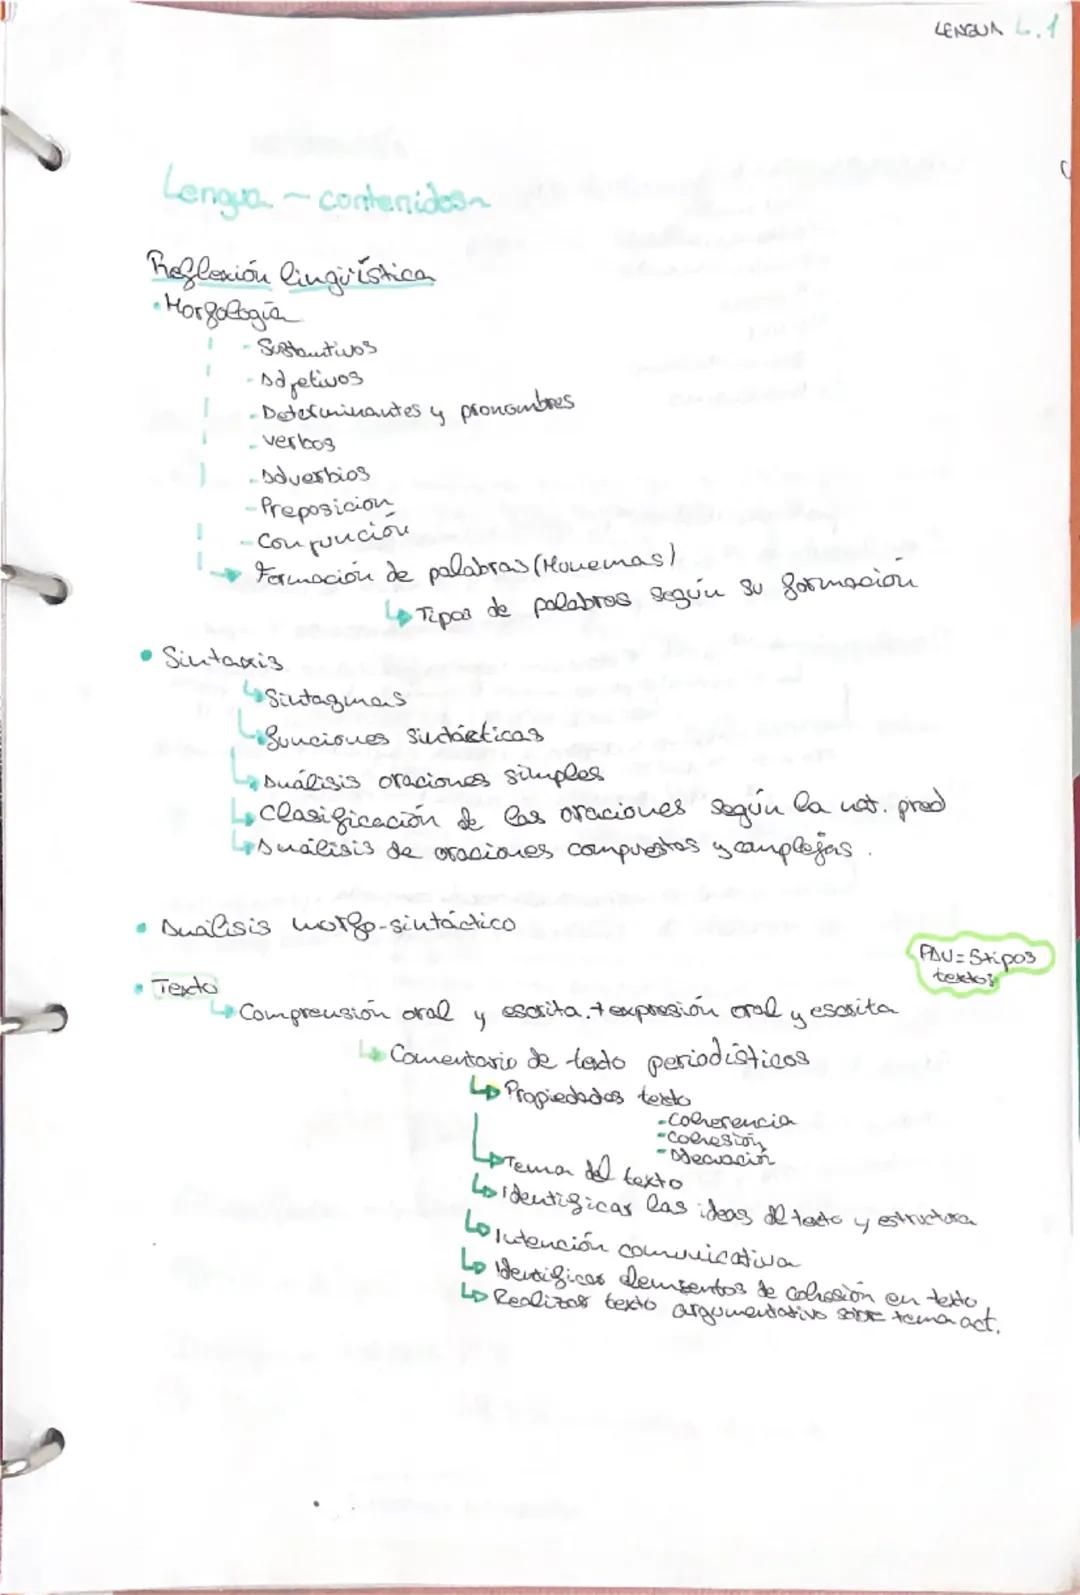 LENGUA L.1
Lengua ~ contenidos
Reflexión lingüística
• Morfología
- Sustantivos
- Adjetivos
- Determinantes y pronombres
- Verbos
- Adverbios
- Preposición
- Conjunción
→ Formación de palabras (Monemas)
↳ Tipos de palabras según su formación
• Sintaxis
↳ Sintagmas
↳ funciones sintácticas
↳ Análisis oraciones simples
↳ Clasificación de las oraciones según la nat. pred
↳ Análisis de oraciones compuestas y complejas.
• Análisis morfo-sintáctico
PAU = 5 tipos
textos
• Texto
↳ Comprensión oral y escrita. + expresión oral y escrita
↳ Comentario de texto periodísticos
↳ Propiedades texto
- Coherencia
- Cohesión
- Adecuación
↳ Tema del texto
↳ identificar las ideas del texto y estructura
↳ Intención comunicativa
↳ Identificar elementos de cohesión en texto
↳ Realizar texto argumentativo sobre tema act.